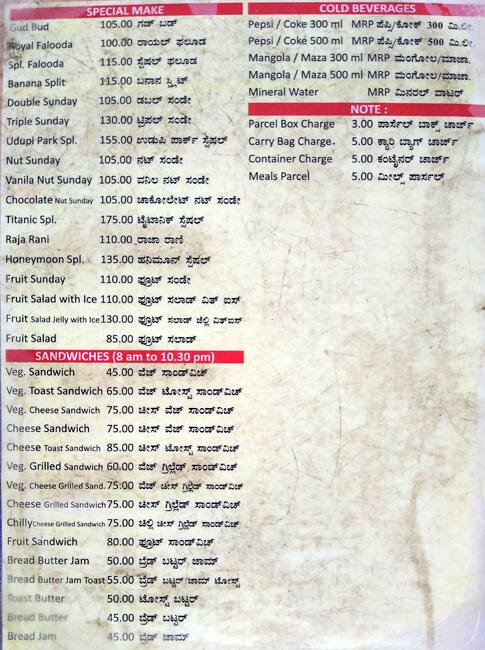 SPECIAL MAKE
Gud Bud 105.00 ಗಡ್ ಬಡ್
Royal Falooda 100.00 ರಾಯಲ್ ಫಲೂಡ
Spl. Falooda 115.00 ಸ್ಪೆಷಲ್ ಫಲೂಡ
Banana Split 115.00 ಬನಾನ ಸ್ಪ್ಲಿಟ್
Double Sunday 105.00 ಡಬಲ್ ಸಂಡೇ
Triple Sunday 130.00 ಟ್ರಿಪಲ್ ಸಂಡೇ
Udupi Park Spl. 155.00 ಉಡುಪಿ ಪಾರ್ಕ್ ಸ್ಪೆಷಲ್
Nut Sunday 105.00 ನಟ್ ಸಂಡೇ
Vanila Nut Sunday 105.00 ವನಿಲ ನಟ್ ಸಂಡೇ
Chocolate Nut Sunday 105.00 ಚಾಕೋಲೇಟ್ ನಟ್ ಸಂಡೇ
Titanic Spl. 175.00 ಟೈಟಾನಿಕ್ ಸ್ಪೆಷಲ್
Raja Rani 110.00 ರಾಜಾ ರಾಣಿ
Honeymoon Spl. 135.00 ಹನಿಮೂನ್ ಸ್ಪೆಷಲ್
Fruit Sunday 110.00 ಫ್ರೂಟ್ ಸಂಡೇ
Fruit Salad with Ice 110.00 ಫ್ರೂಟ್ ಸಲಾಡ್ ವಿತ್ ಐಸ್
Fruit Salad Jelly with Ice 130.00 ಫ್ರೂಟ್ ಸಲಾಡ್ ಜೆಲ್ಲಿ ವಿತ್ಐಸ್
Fruit Salad 85.00 ಫ್ರೂಟ್ ಸಲಾಡ್
SANDWICHES (8 am to 10.30 pm)
Veg. Sandwich 45.00 ವೆಜ್ ಸಾಂಡ್‌ವಿಚ್
Veg. Toast Sandwich 65.00 ವೆಜ್ ಟೋಸ್ಟ್ ಸಾಂಡ್‌ವಿಚ್
Veg. Cheese Sandwich 75.00 ಚೀಸ್ ವೆಜ್ ಸಾಂಡ್‌ವಿಚ್
Cheese Sandwich 75.00 ಚೀಸ್ ಸಾಂಡ್‌ವಿಚ್
Cheese Toast Sandwich 85.00 ಚೀಸ್ ಟೋಸ್ಟ್ ಸಾಂಡ್‌ವಿಚ್
Veg. Grilled Sandwich 60.00 ವೆಜ್ ಗ್ರಿಲ್ಲೆಡ್ ಸಾಂಡ್‌ವಿಚ್
Veg. Cheese Grilled Sand. 75.00 ವೆಜ್ ಚೀಸ್ ಗ್ರಿಲ್ಲೆಡ್ ಸಾಂಡ್‌ವಿಚ್
Cheese Grilled Sandwich 75.00 ಚೀಸ್ ಗ್ರಿಲ್ಲೆಡ್ ಸಾಂಡ್‌ವಿಚ್
Chilly Cheese Grilled Sandwich 75.00 ಚಿಲ್ಲಿ ಚೀಸ್ ಗ್ರಿಲ್ಲೆಡ್ ಸಾಂಡ್‌ವಿಚ್
Fruit Sandwich 80.00 ಫ್ರೂಟ್ ಸಾಂಡ್‌ವಿಚ್
Bread Butter Jam 50.00 ಬ್ರೆಡ್ ಬಟ್ಟರ್ ಜಾಮ್
Bread Butter Jam Toast 55.00 ಬ್ರೆಡ್ ಬಟ್ಟರ್ ಜಾಮ್ ಟೋಸ್ಟ್
Toast Butter 50.00 ಟೋಸ್ಟ್ ಬಟ್ಟರ್
Bread Butter 45.00 ಬ್ರೆಡ್ ಬಟ್ಟರ್
Bread Jam 45.00 ಬ್ರೆಡ್ ಜಾಮ್
COLD BEVERAGES
Pepsi / Coke 300 ml MRP ಪೆಪ್ಸಿ/ಕೋಕ್ 300 ಮಿ.ಲೀ.
Pepsi / Coke 500 ml MRP ಪೆಪ್ಸಿ/ಕೋಕ್ 500 ಮಿ.ಲೀ.
Mangola / Maza 300 ml MRP ಮಂಗೋಲ/ಮಾಜಾ.
Mangola / Maza 500 ml MRP ಮಂಗೋಲ/ಮಾಜಾ.
Mineral Water MRP ಮಿನರಲ್ ವಾಟರ್
NOTE :
Parcel Box Charge 3.00 ಪಾರ್ಸೆಲ್ ಬಾಕ್ಸ್ ಚಾರ್ಜ್
Carry Bag Charge. 5.00 ಕ್ಯಾರಿ ಬ್ಯಾಗ್ ಚಾರ್ಜ್
Container Charge 5.00 ಕಂಟೈನರ್ ಚಾರ್ಜ್
Meals Parcel 5.00 ಮೀಲ್ಸ್ ಪಾರ್ಸಲ್